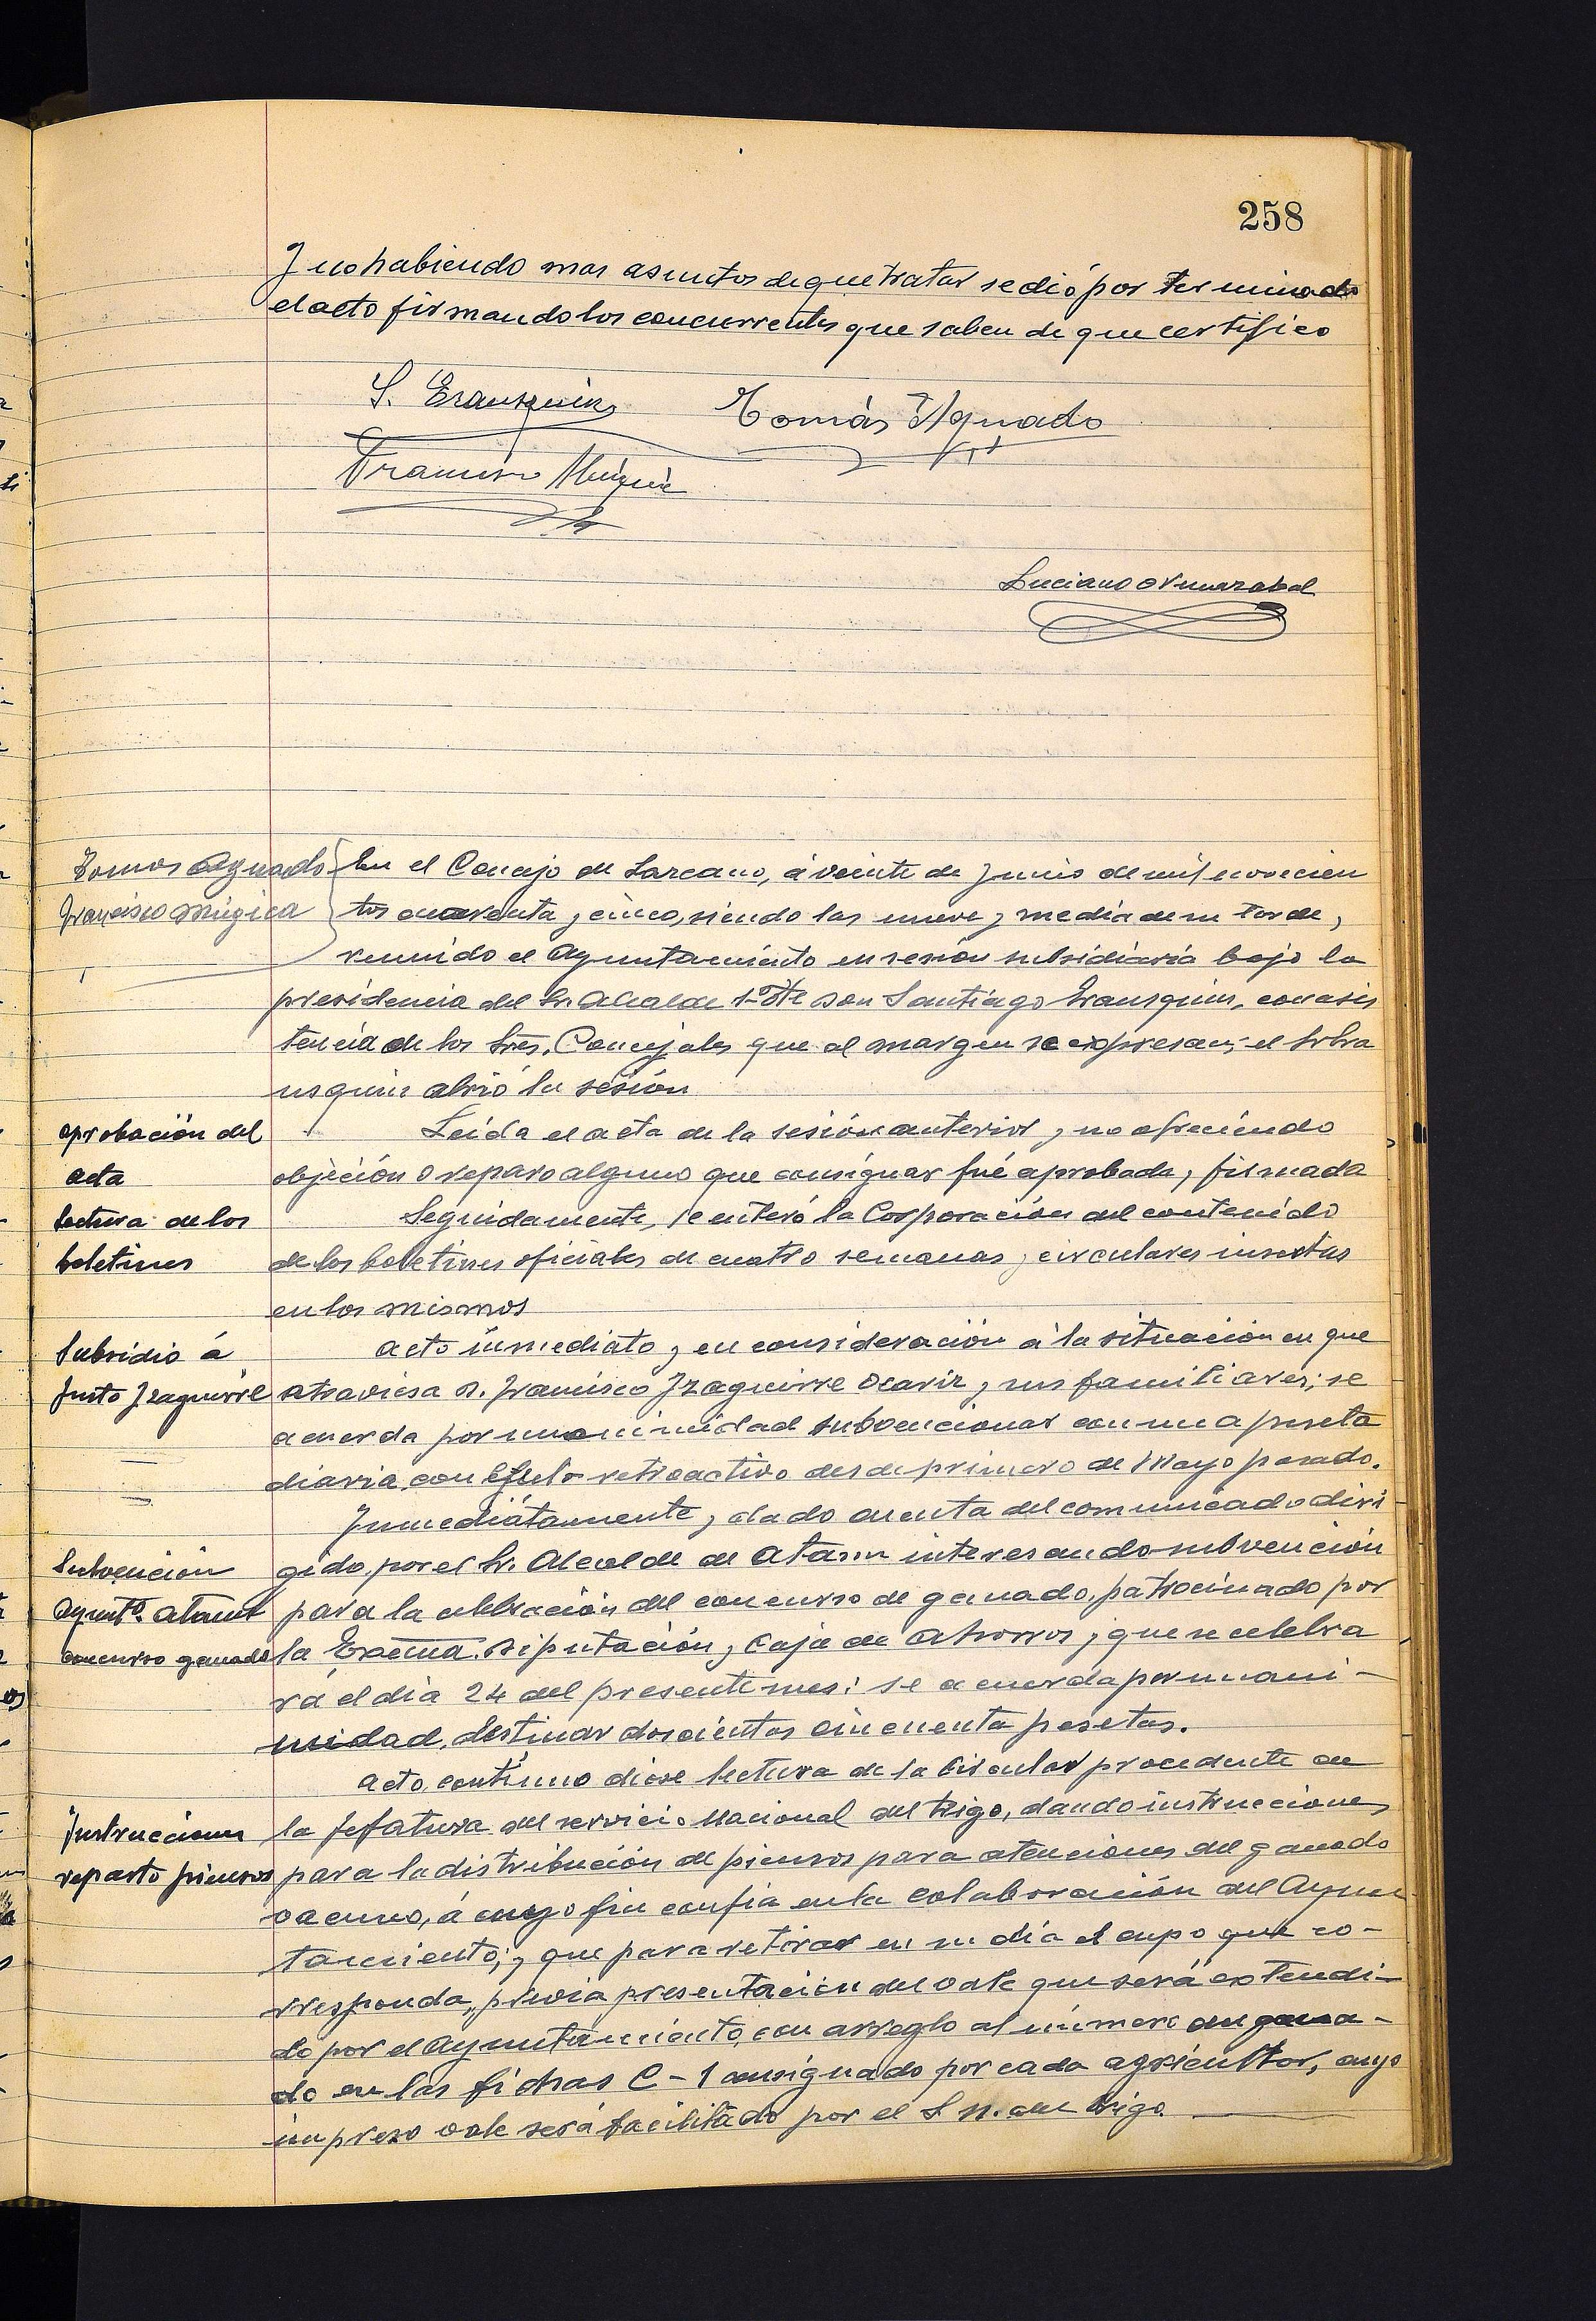 258
Y no habiendo mas asuntos de que tratar se dió por terminado
el acto firmando los concurrentes que saben de que certifico
S. Erausquin Tomás Aguado
Francisco Múgica
Luciano
Tomas Aguado
Francisco Múgica
En el Concejo de Lazcano, á veinte de Junio de mil novecien
tos cuarenta y cinco, siendo las nueve y media de su tarde,
reunido el Ayuntamiento en sesión subsidiaria bajo la
presidencia del Sr. Alcalde 1º Tte Don Santiago Erausquin, con asis
tencia de los Sres. Concejales que al margen se expresan; el Sr Era
usquin abrió la sesión
aprobación del
acta
Leída el acta de la sesión anterior y no ofreciendo
objeción o reparo alguno que consignar fué aprobada y firmada
Lectura de los
boletines
Seguidamente, se enteró la Corporación del contenido
de los boletines oficiales de cuatro semanas y circulares insertas
en los mismos
Subsidio á
Justo Izaguirre
acto inmediato y en consideración á la situación en que
atraviesa D. Francisco Izaguirre Ocariz y sus familiares; se
acuerda por unanimidad subvencionar con una peseta
diaria con efecto retroactivo desde primero de Mayo pasado.
Inmediátamente y dado cuenta del comunicado diri
Subvención
Ayuntº. Ataun
concurso ganado
gido por el Sr. Alcalde de Ataun interesando subvención
para la celebración del concurso de ganado, patrocinado por
la Excma. Diputación y Caja de Ahorros y que se celebra
rá el día 24 del presente mes: se acuerda por unani-
midad, destinar doscientas cincuenta pesetas.
acto contínuo dióse lectura de la Circular procedente de
Instrucciones
reparto piensos
la Jefatura del servicio Nacional del Trigo, dando instrucciones
para la distribución de piensos para atenciones del ganado
vacuno, á cuyo fin confía en la colaboración del Ayun
tamiento; y que para retirar en su día el cupo que co-
rresponda, previa presentación del vale que será extendi-
do por el Ayuntamiento, con arreglo al número de gana-
do en las fichas C-1 consignado por cada agricultor, cuyo
impreso vale será facilitado por el S. N. del Trigo.